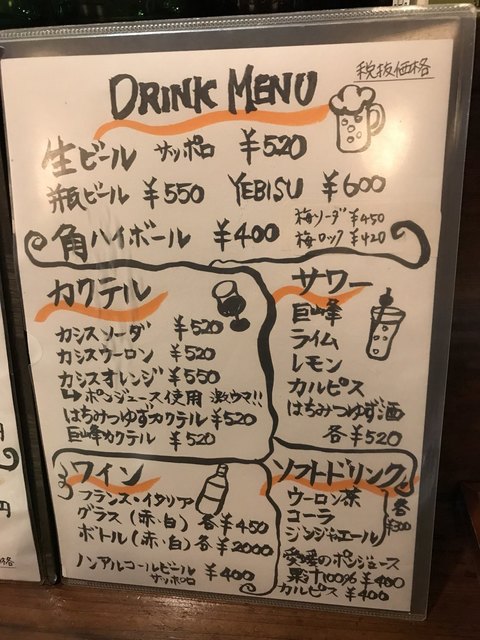 税抜価格
DRINK MENU
生ビール サッポロ ¥520
瓶ビール ¥550 YEBISU ¥600
角ハイボール ¥400
梅ソーダ ¥450
梅ロック ¥420
カクテル
カシスソーダ ¥520
カシスウーロン ¥520
カシスオレンジ ¥550
↳ポンジュース使用 激ウマ!!
はちみつゆずカクテル ¥520
巨峰カクテル ¥520
サワー
巨山峰
ライム
レモン
カルピス
はちみつゆず酒
各¥520
ワイン
フランス・イタリア
グラス(赤・白)各¥450
ボトル(赤・白)各¥2000
ノンアルコールビール ¥400
サッポロ
ソフトドリンク
ウーロン茶
コーラ
ジンジャエール
各¥300
愛媛のポンジュース
果汁100% ¥400
カルピス ¥400
円
円